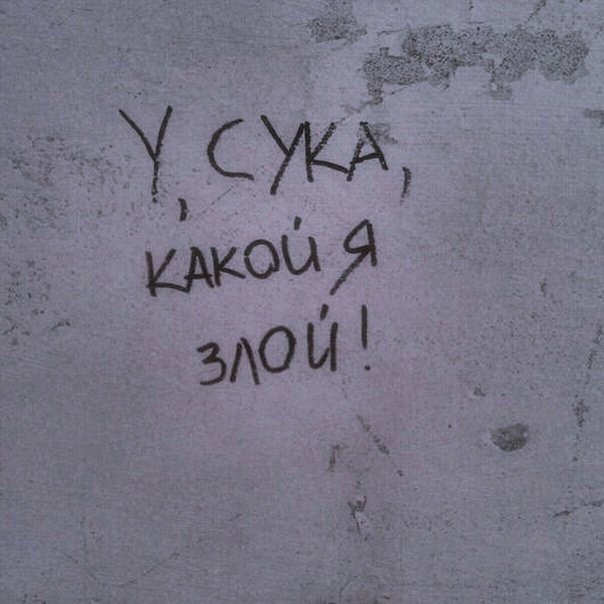 У, СУКА,
КАКОЙ Я
ЗЛОЙ!